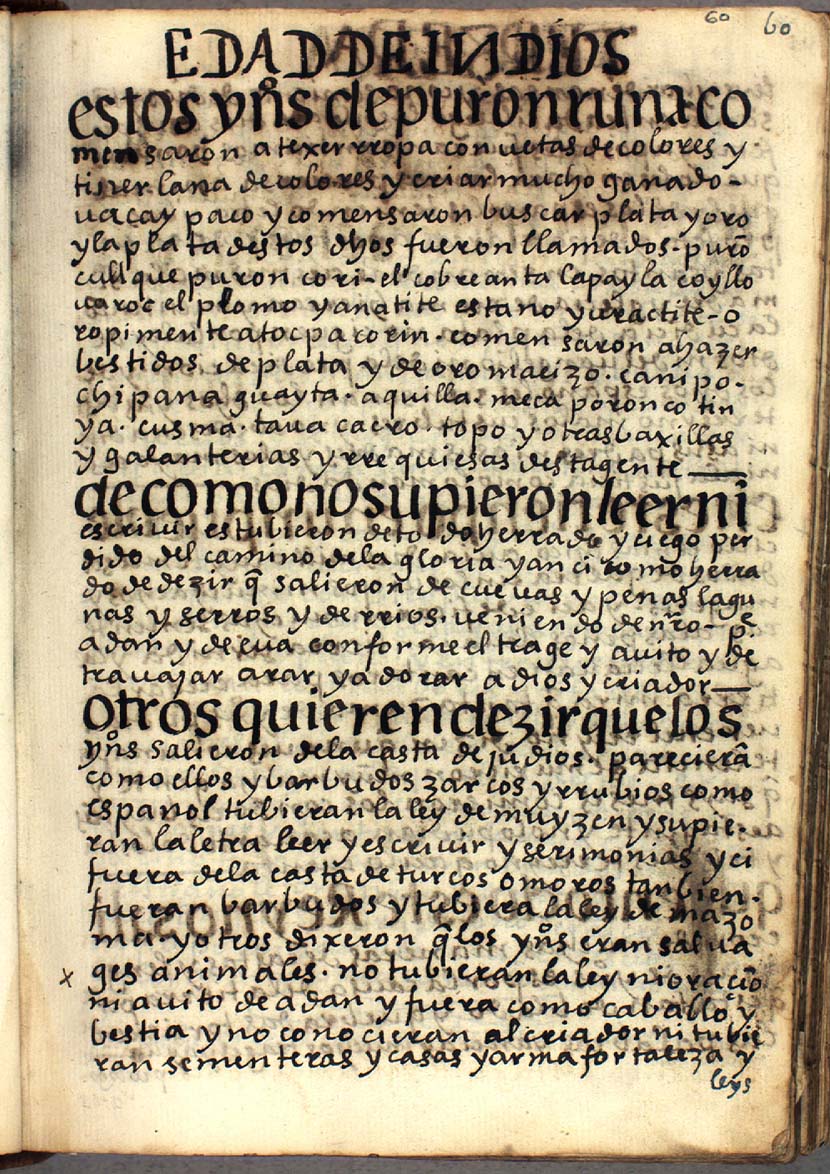 60 60
EDAD DE INDIOS
estos yñs de puron runa co
mensaron a texer rropa con uetas de colores y
tiñer lana de colores y criar mucho ganado -
uacay paco y comensaron buscar plata y oro
y la plata destos dhos fueron llamados - purō
cullque puron cori - el cobre anta lapay la coyllo
uaroc el plomo yanatite estano yuractite - o
ropimente atocpa corin · comensaron a hazer
bestidos de plata y de oro macizo · canipo ·
chipana guayta · aquilla · meca poronco tin
ya · cusma · taua cacro · topo y otras baxillas
y galanterias y rrequiesas desta gente —
de como no supieron leer ni
escriuir estubieron de todo herrado y ciego per
dido del camino de la gloria y anci como herra
do de dezir q̄ salieron de cueuas y penas lagu
nas y serros y de rrios · ueniendo de nr̄o - pe
adan y de eua conforme el trage y auito y de
trauajar arar y adorar a dios y criador —
otros quieren dezir que los
yñs salieron de la casta de judios · parecierā
como ellos y barbudos zarcos y rrubios como
espanol tubieran la ley de muyzen y supie ·
ran la letra leer y escriuir y serimonias y ci
fuera de la casta de turcos o moros tanbien ·
fueran barbudos y tubiera la ley de mazo
ma · y otros dixeron q̄ los yñs eran salua
x ges animales · no tubieran la ley ni oraciō
ni auito de adan y fuera como caballo y
bestia y no conocieran al criador ni tubie
ran sementeras y casas y arma fortaleza y
leys